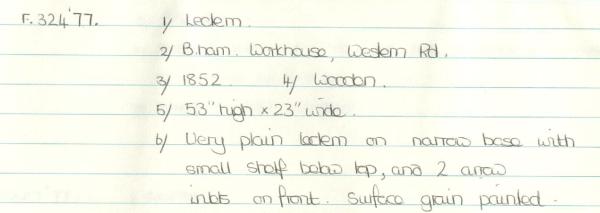 F.324'77. 1/ Lectern.
2/ B.ham. Workhouse, Western Rd.
3/ 1852. 4/ Wooden.
5/ 53" high x 23" wide.
6/ Very plain lectern on narrow base with
small shelf below top, and 2 arrow
inlets on front. Surface grain painted.